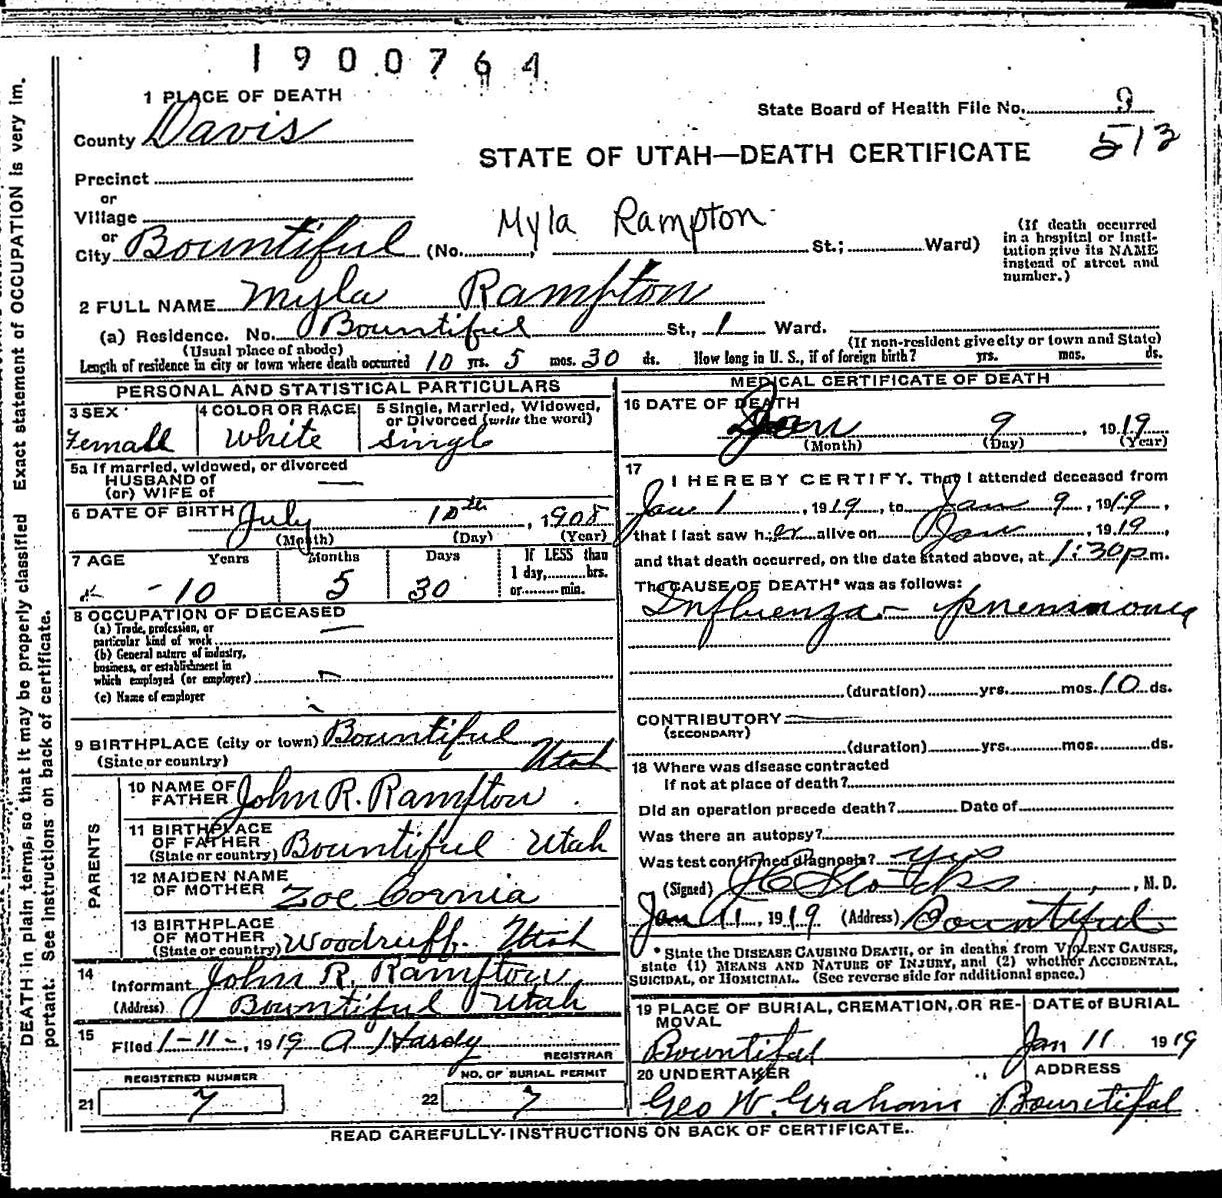 1900764
1 PLACE OF DEATH
State Board of Health File No. 9
County Davis
513
STATE OF UTAH—DEATH CERTIFICATE
Precinct
or
Village
Myla Rampton
or
City Bountiful (No. , St.; Ward)
(If death occurred in a hospital or institution give its NAME instead of street and number.)
2 FULL NAME Myla Rampton
(a) Residence. No. Bountiful St., 1 Ward.
(Usual place of abode)
(If non-resident give city or town and State)
Length of residence in city or town where death occurred 10 yrs. 5 mos. 30 ds. How long in U. S., if of foreign birth? yrs. mos. ds.
PERSONAL AND STATISTICAL PARTICULARS
3 SEX Female
4 COLOR OR RACE White
5 Single, Married, Widowed, or Divorced (write the word) Single
5a If married, widowed, or divorced
HUSBAND OF
(or) WIFE OF
6 DATE OF BIRTH July 10th, 1908
(Month) (Day) (Year)
7 AGE Years Months Days If LESS than
1 day, hrs.
or min.
10 5 30
8 OCCUPATION OF DECEASED
(a) Trade, profession, or
particular kind of work
(b) General nature of industry,
business, or establishment in
which employed (or employer)
(c) Name of employer
9 BIRTHPLACE (city or town) Bountiful
(State or country) Utah
PARENTS
10 NAME OF FATHER John R. Rampton
11 BIRTHPLACE OF FATHER (State or country) Bountiful Utah
12 MAIDEN NAME OF MOTHER Zoe Cornia
13 BIRTHPLACE OF MOTHER (State or country) Woodruff. Utah
14 Informant John R. Rampton
(Address) Bountiful Utah
15 Filed 1-11-, 1919 A Hardy
REGISTRAR
REGISTERED NUMBER
21 7
NO. OF BURIAL PERMIT
22 7
MEDICAL CERTIFICATE OF DEATH
16 DATE OF DEATH
Jan 9, 1919
(Month) (Day) (Year)
17 I HEREBY CERTIFY, That I attended deceased from
Jan 1, 1919, to Jan 9, 1919,
that I last saw her alive on Jan, 1919,
and that death occurred, on the date stated above, at 1:30 p m.
The CAUSE OF DEATH* was as follows:
Influenza - pneumonia
(duration) yrs. mos. 10 ds.
CONTRIBUTORY
(SECONDARY)
(duration) yrs. mos. ds.
18 Where was disease contracted
If not at place of death?
Did an operation precede death? Date of
Was there an autopsy?
Was test confirmed diagnosis? yes
(Signed) , M. D.
Jan 11, 1919 (Address) Bountiful
* State the DISEASE CAUSING DEATH, or in deaths from VIOLENT CAUSES,
state (1) MEANS AND NATURE OF INJURY, and (2) whether ACCIDENTAL,
SUICIDAL, or HOMICIDAL. (See reverse side for additional space.)
19 PLACE OF BURIAL, CREMATION, OR REMOVAL
Bountiful
DATE of BURIAL
Jan 11 1919
20 UNDERTAKER
Geo W. Graham
ADDRESS
Bountiful
READ CAREFULLY-INSTRUCTIONS ON BACK OF CERTIFICATE.
DEATH in plain terms, so that it may be properly classified Exact statement of OCCUPATION is very im-
portant: See Instructions on back of certificate.